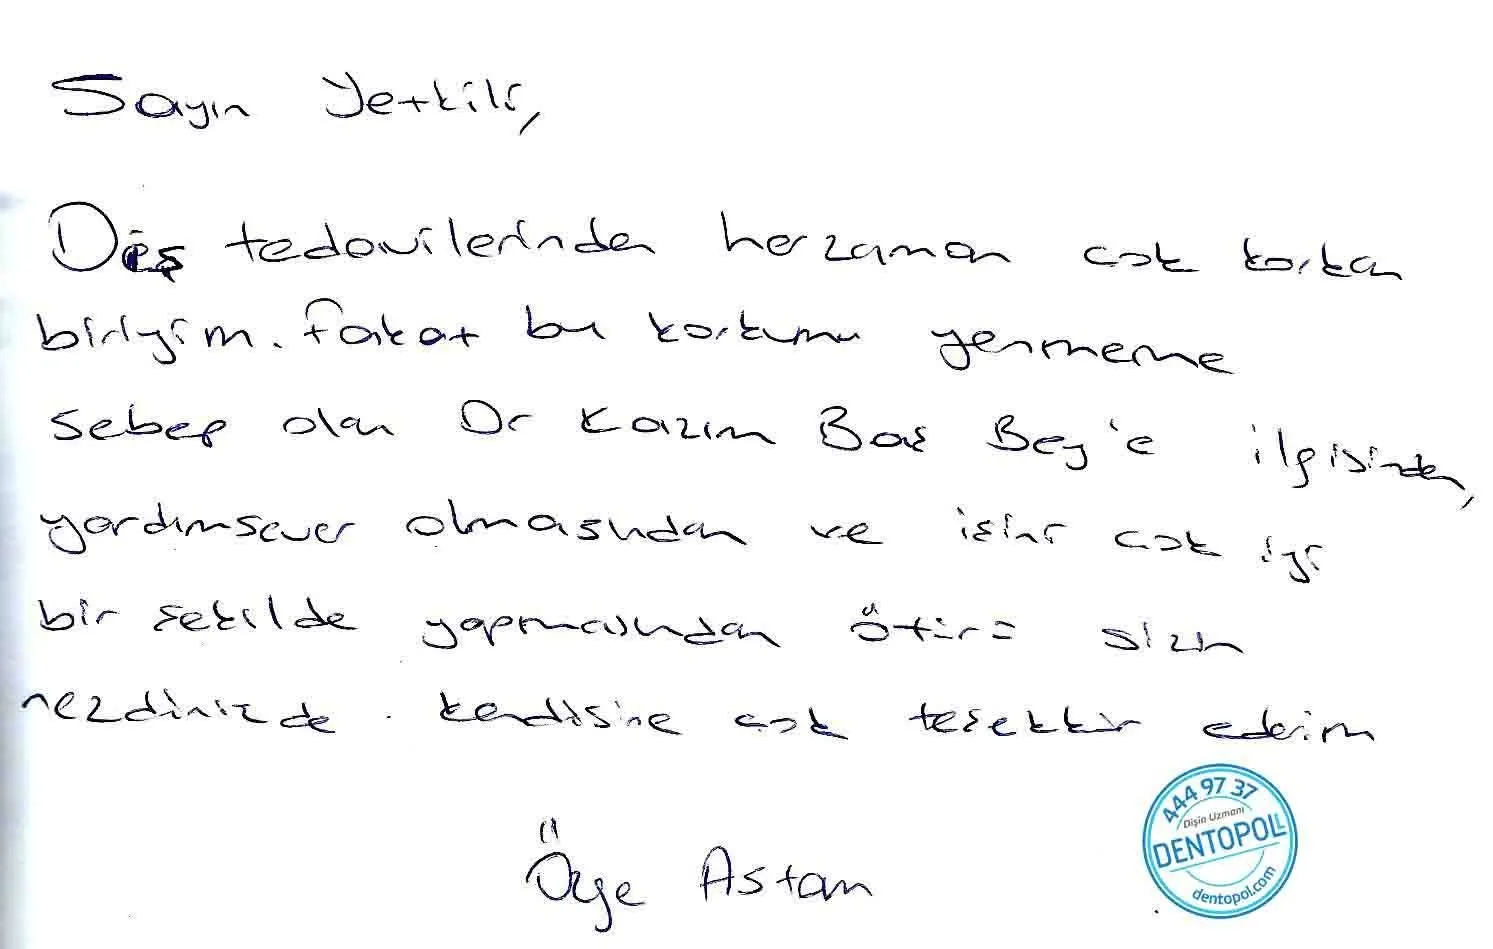 Sayın Yetkili,
Diş tedavilerinden herzaman çok korkan
biriyim. Fakat bu korkumu yenmeme
sebep olan Dr Kazım Baş Bey'e ilgisinden,
yardımsever olmasından ve işini çok iyi
bir şekilde yapmasından ötürü sizin
nezdinizde kendisine çok teşekkür ederim
Astam
444 97 37
Dişin Uzmanı
DENTOPOL
dentopol.com